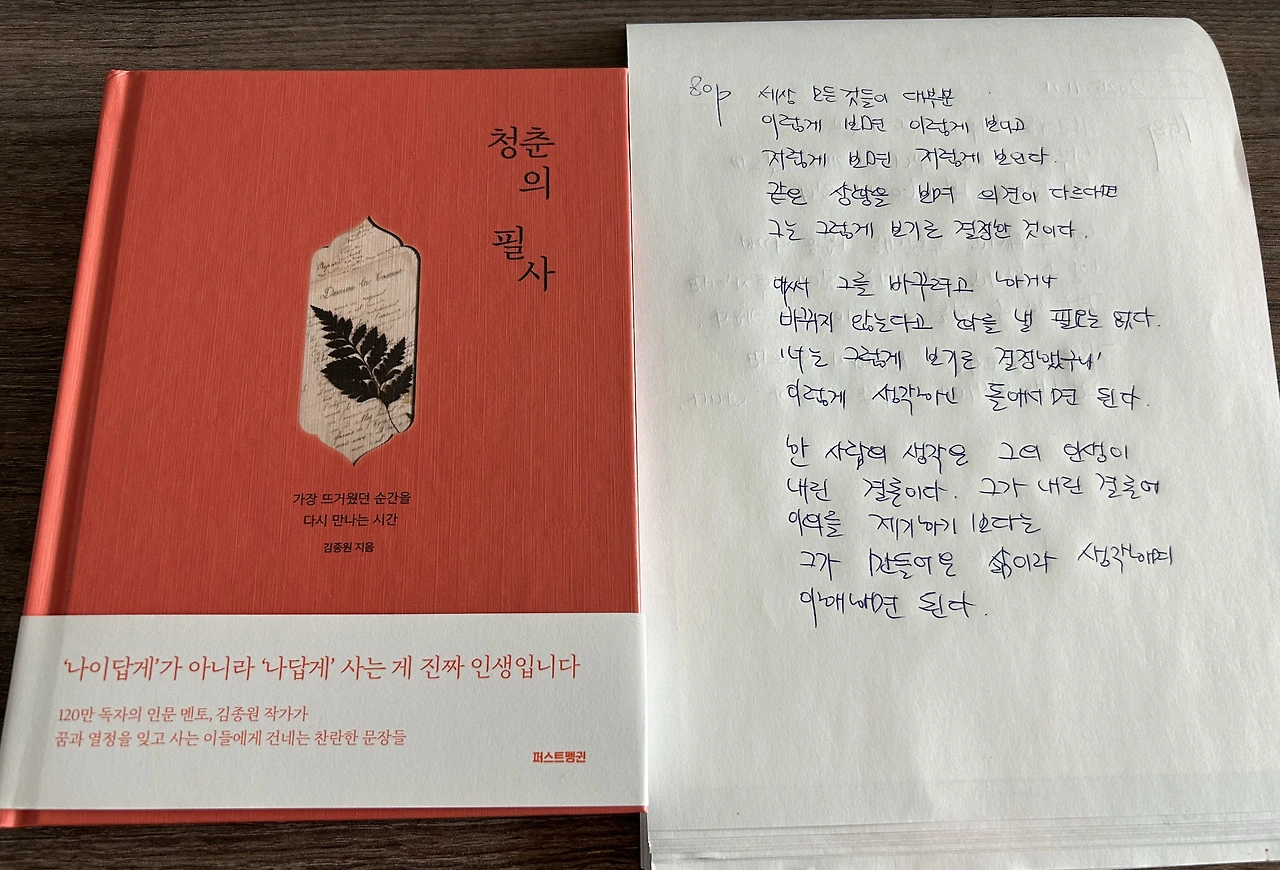 청춘
의
필
사
가장 뜨거웠던 순간을
다시 만나는 시간
김종원 지음
'나이답게'가 아니라 '나답게' 사는 게 진짜 인생입니다
120만 독자의 인문 멘토, 김종원 작가가
꿈과 열정을 잊고 사는 이들에게 건네는 찬란한 문장들
퍼스트펭귄
80p 세상 모든것들이 대부분
이렇게 보면 이렇게 보이고
저렇게 보면 저렇게 보인다.
같은 상황을 보며 의견이 다르다면
그는 그렇게 보기로 결정한 것이다.
애써 그를 바꾸려고 하거나
바뀌지 않는다고 화를 낼 필요는 없다.
'너는 그렇게 보기로 결정했구나'
이렇게 생각하고 돌아서면 된다.
한 사람의 생각은 그의 인생이
내린 결론이다. 그가 내린 결론에
이의를 제기하기 보다는
그가 만들어온 삶이라 생각하며
이해하면 된다.